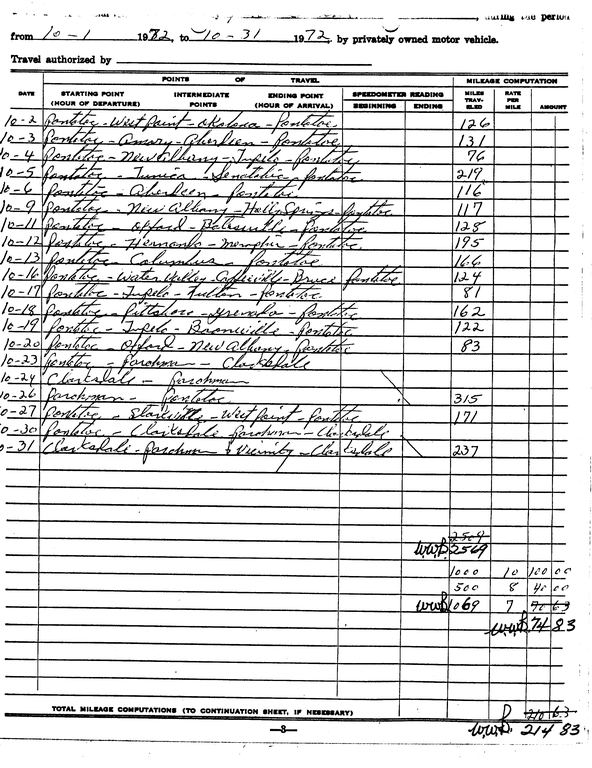 during the period
from 10-1 1972, to 10-31 1972. by privately owned motor vehicle.
Travel authorized by
POINTS OF TRAVEL MILEAGE COMPUTATION
DATE STARTING POINT (HOUR OF DEPARTURE) INTERMEDIATE POINTS ENDING POINT (HOUR OF ARRIVAL) SPEEDOMETER READING BEGINNING ENDING MILES TRAV-ELED RATE PER MILE AMOUNT
10-2 Pontotoc - West Point - Okolona - Pontotoc 126
10-3 Pontotoc - Amory - Aberdeen - Pontotoc 131
10-4 Pontotoc - New Albany - Tupelo - Pontotoc 76
10-5 Pontotoc - Tunica - Senatobia - Pontotoc 219
10-6 Pontotoc - Aberdeen - Pontotoc 116
10-9 Pontotoc - New Albany - Holly Springs - Pontotoc 117
10-11 Pontotoc - Oxford - Batesville - Pontotoc 128
10-12 Pontotoc - Hernando - Memphis - Pontotoc 195
10-13 Pontotoc - Columbus - Pontotoc 166
10-16 Pontotoc - Water Valley - Coffeeville - Bruce - Pontotoc 124
10-17 Pontotoc - Tupelo - Fulton - Pontotoc 81
10-18 Pontotoc - Pittsboro - Grenada - Pontotoc 162
10-19 Pontotoc - Tupelo - Booneville - Pontotoc 122
10-20 Pontotoc - Oxford - New Albany, Pontotoc 83
10-23 Pontotoc - Parchman - Clarksdale
10-24 Clarksdale - Parchman
10-26 Parchman - Pontotoc 315
10-27 Pontotoc - Starkville - West Point - Pontotoc 171
10-30 Pontotoc - Clarksdale - Parchman - Clarksdale
10-31 Clarksdale - Parchman & Vicinity - Clarksdale 237
2509
WWP. 2569
1000 10 100 00
500 8 40 00
WWP 1069 7 70 63
WWP. 74 83
TOTAL MILEAGE COMPUTATIONS (TO CONTINUATION SHEET, IF NESESSARY) 210 63
—3— WWP. 214 83